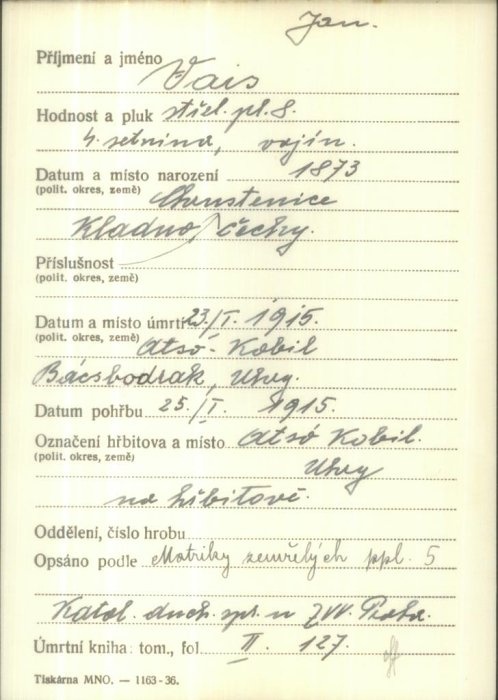 Jan.
Příjmení a jméno Vais
Hodnost a pluk střel. pl. 8.
4. setnina, vojín.
Datum a místo narození 1873
(polit. okres, země) Chrustenice
Kladno, Čechy.
Příslušnost
(polit. okres, země)
Datum a místo úmrtí 23/I. 1915.
(polit. okres, země) Alsó-Kobil
Bácsbodrak, Uhry.
Datum pohřbu 25./I. 1915.
Označení hřbitova a místo Alsó Kobil.
(polit. okres, země)
Uhry
na hřbitově.
Oddělení, číslo hrobu
Opsáno podle Matriky zemřelých ppl. 5
Katol. duch. spr. u ZVV. Praha.
Úmrtní kniha: tom., fol. II. 127.
Tiskárna MNO. — 1163-36.